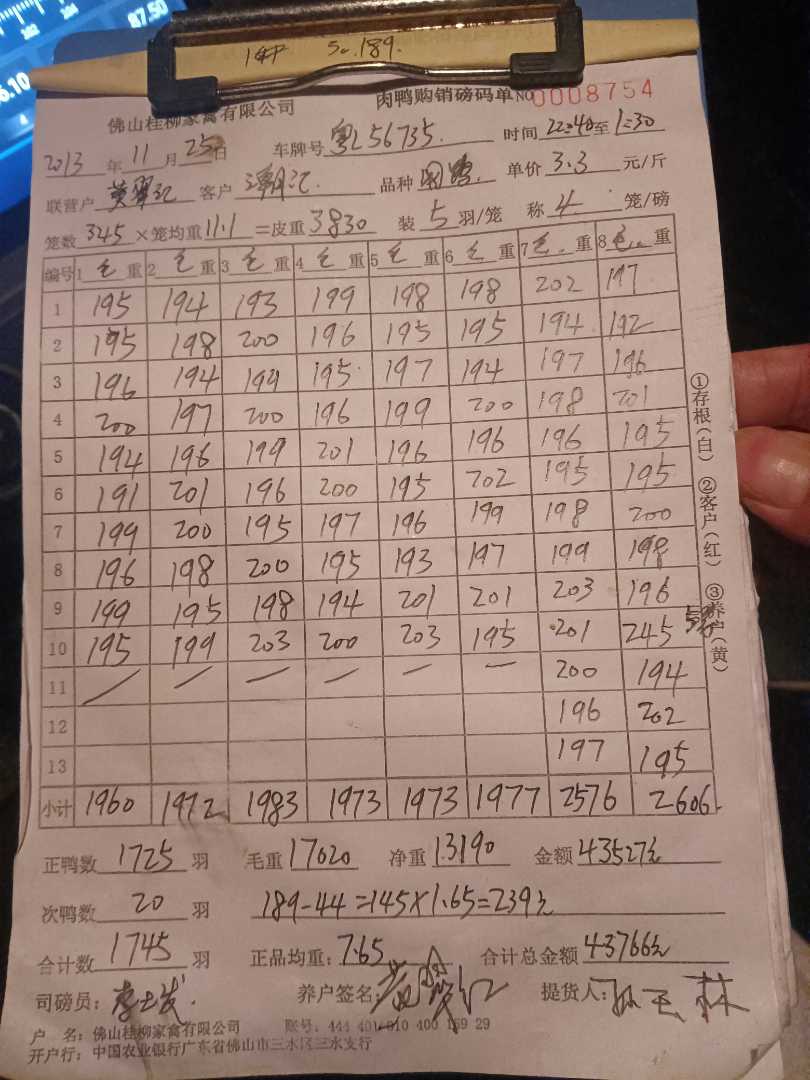 87.50
6.10
189.
佛山桂柳家禽有限公司 肉鸭购销磅码单 No 0008754
2013年11月25日 车牌号 粤L56735. 时间 22:40至1:30
联营户 客户 品种 单价 3.3 元/斤
笼数 345 ×笼均重 11.1 =皮重 3830 装 5 羽/笼 称 4 笼/磅
编号 1 毛重 2 毛重 3 毛重 4 毛重 5 毛重 6 毛重 7 毛重 8 毛重
1 195 194 193 199 198 198 202 197
2 195 198 200 196 195 195 194 192
3 196 194 199 195 197 194 197 196
4 200 197 200 196 199 200 198 201
5 194 196 199 201 196 196 196 195
6 191 201 196 200 195 202 195 195
7 199 200 195 197 196 199 198 200
8 196 198 200 195 193 197 199 198
9 199 195 198 194 201 201 203 196
10 195 199 203 200 203 195 201 245
11 — — — — — — 200 194
12 196 202
13 197 195
小计 1960 1972 1983 1973 1973 1977 2576 2606
①存根(白) ②客户(红) ③养户(黄)
正鸭数 1725 羽 毛重 17020 净重 13190 金额 43527元
次鸭数 20 羽 189-44=145×1.65=239元
合计数 1745 羽 正品均重: 7.65 合计总金额 43766元
司磅员: 养户签名: 提货人:
户 名: 佛山桂柳家禽有限公司 账号: 444 401 010 400 159 29
开户行: 中国农业银行广东省佛山市三水区三水支行